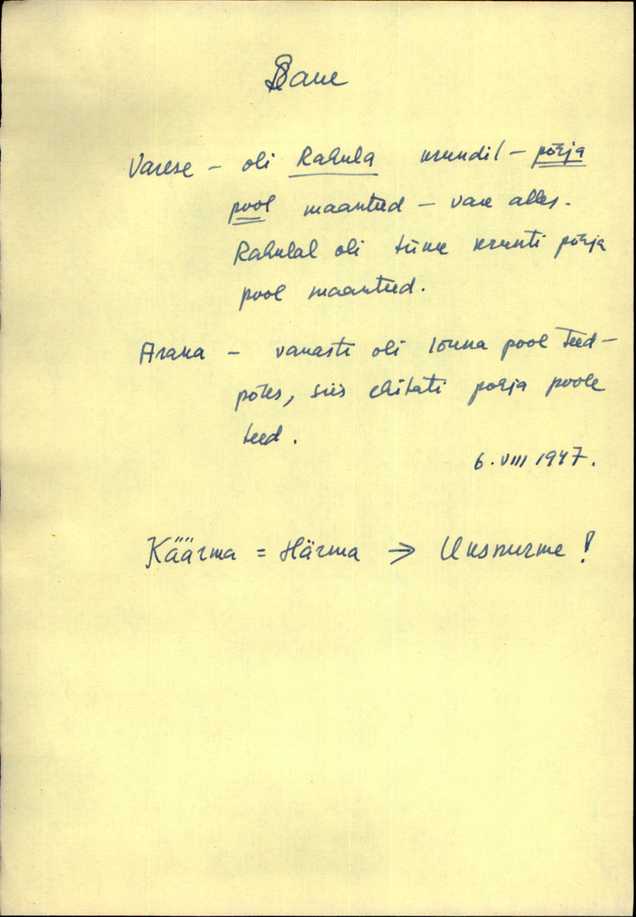 Sane
Varese – oli Rahula krundil – põhja
pool maanteed – vare alles.
Rahulal oli tükk krunti põhja
pool maanteed.
Araka – vanasti oli lõuna pool teed –
põles, siis ehitati põhja poole
teed.
6. VIII 1947.
Käärma = Härma → Uksnurme!